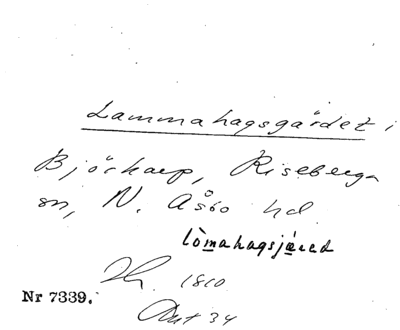 Lammahagsgärdet i
Björkarp, Riseberga
sn, N. Åsbo hd
lòmahagsjæred
1810
Nr 7339.
34